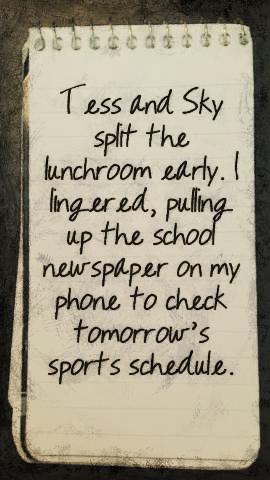 Tess and Sky
split the
lunchroom early. I
lingered, pulling
up the school
newspaper on my
phone to check
tomorrow's
sports schedule.